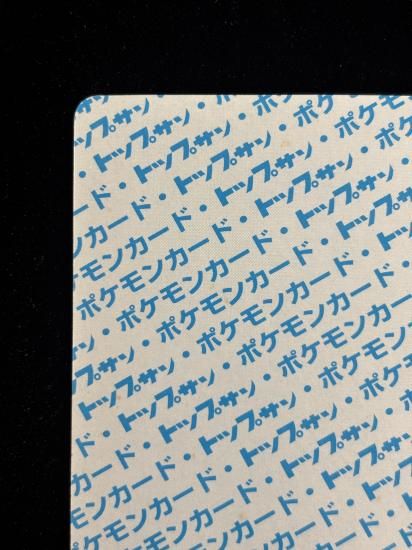 トップサン
・トップサン・ポケモ
ード・トップサン・ポケモ
カード・トップサン・ポケ
モンカード・トップサン・
ポケモンカード・トップ
・ポケモンカード・
トップサン・ポケモンカード
・トップサン・ポケモンカ
ド・トップサン・ポケモ
カード・トップサン・ポケ
モンカード・トップサン
ポケモンカード・トップ
ポケモンカード